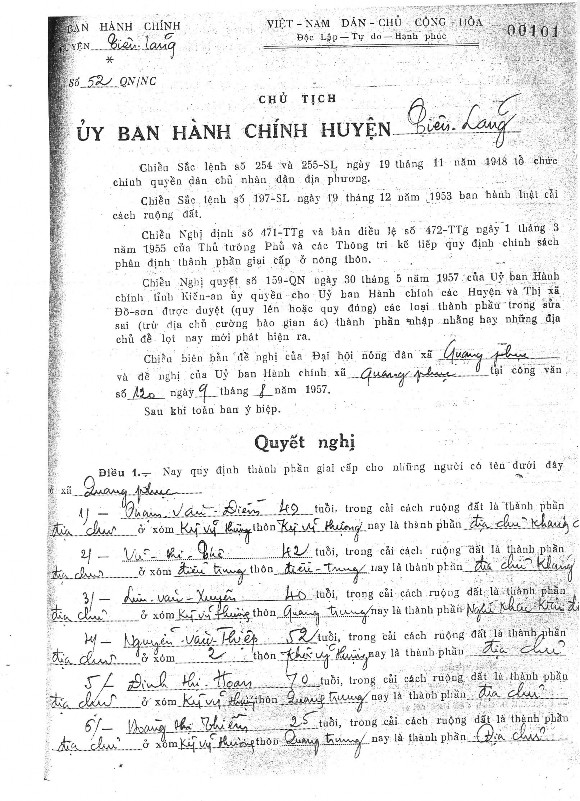 BAN HÀNH CHÍNH
HUYỆN Tiên-Lãng
*
Số 52 QN/NC
VIỆT-NAM DÂN-CHỦ CỘNG-HÒA
Độc Lập—Tự do—Hạnh phúc
00101
CHỦ TỊCH
ỦY BAN HÀNH CHÍNH HUYỆN Tiên-Lãng
Chiểu Sắc lệnh số 254 và 255-SL ngày 19 tháng 11 năm 1948 tổ chức
chính quyền dân chủ nhân dân địa phương.
Chiểu Sắc lệnh số 197-SL ngày 19 tháng 12 năm 1953 ban hành luật cải
cách ruộng đất.
Chiểu Nghị định số 471-TTg và bản điều lệ số 472-TTg ngày 1 tháng 3
năm 1955 của Thủ tướng Phủ và các Thông tri kế tiếp quy định chính sách
phân định thành phần giai cấp ở nông thôn.
Chiểu Nghị quyết số 159-QN ngày 30 tháng 5 năm 1957 của Uỷ ban Hành
chính tỉnh Kiến-an ủy quyền cho Uỷ ban Hành chính các Huyện và Thị xã
Đồ-sơn được duyệt (quy lên hoặc quy đúng) các loại thành phần trong sửa
sai (trừ địa chủ cường hào gian ác) thành phần nhập nhằng hay những địa
chủ để lọt nay mới phát hiện ra.
Chiểu biên bản đề nghị của Đại hội nông dân xã Quang phục
và đề nghị của Uỷ ban Hành chính xã Quang phục tại công văn
số 120 ngày 9 tháng 8 năm 1957.
Sau khi toàn ban ý hiệp.
Quyết nghị
Điều 1.— Nay quy định thành phần giai cấp cho những người có tên dưới đây
ở xã Quang phục
1/— Phạm-Văn-Diễn 49 tuổi, trong cải cách ruộng đất là thành phần
địa chủ ở xóm Kỳ vỹ thượng thôn Kỳ vỹ thượng nay là thành phần địa chủ kháng c
2/— Vũ-thị 42 tuổi, trong cải cách ruộng đất là thành phần
địa chủ ở xóm điều trung thôn điều-trung nay là thành phần địa chủ kháng
3/— văn-Xuyên 40 tuổi, trong cải cách ruộng đất là thành phần
địa chủ ở xóm Kỳ vỹ thượng thôn Quang trung nay là thành phần
4/— Nguyễn-Văn-Thiếp 52 tuổi, trong cải cách ruộng đất là thành phần
địa chủ ở xóm 2 thôn vỹ thượng nay là thành phần địa chủ
5/— Đinh thị-Hoan 70 tuổi, trong cải cách ruộng đất là thành phần
địa chủ ở xóm Kỳ vỹ thượng thôn Quang trung nay là thành phần địa chủ
6/— Hoàng thị 25 tuổi, trong cải cách ruộng đất là thành phần
địa chủ ở xóm Kỳ vỹ thượng thôn Quang trung nay là thành phần Địa chủ